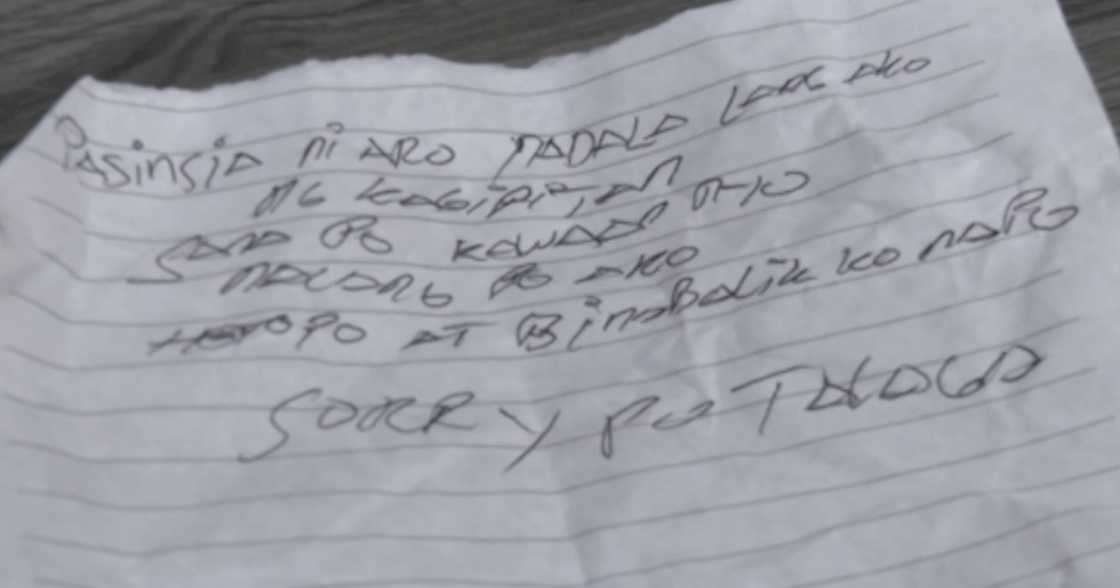 PASINSIA NI ARO NADALA LANG AKO
NG KAGIPITAN
SANA PO KAWAAN NIYO
NALANG PO AKO
PO AT BINABALIK KO NAPO
SORRY PO TALAGA